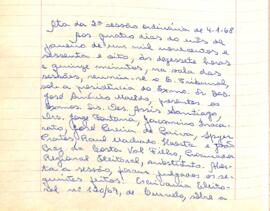 Ata da 2ª sessão ordinária de 4-1-68
Aos quatro dias do mês de
janeiro de um mil novecentos e
sessenta e oito, às dezessete horas
e quinze minutos, na sala das
sessões, reuniu-se o E. Tribunal,
sob a presidência do Exmo. Sr. Des.
José Américo Macêdo, presentes os
Exmos. Srs. Des. Assis Santiago,
Drs. Jorge Fontana, Jacomino Inacar-
rato, José Pereira de Paiva,
Raul Machado Horta e João
Braz da Costa Val Filho, Procurador
Regional Eleitoral, substituto. Aber-
ta a sessão, foram julgados os se-
guintes feitos: Escrivania Eleito-
ral nº 120/67, de sobre a